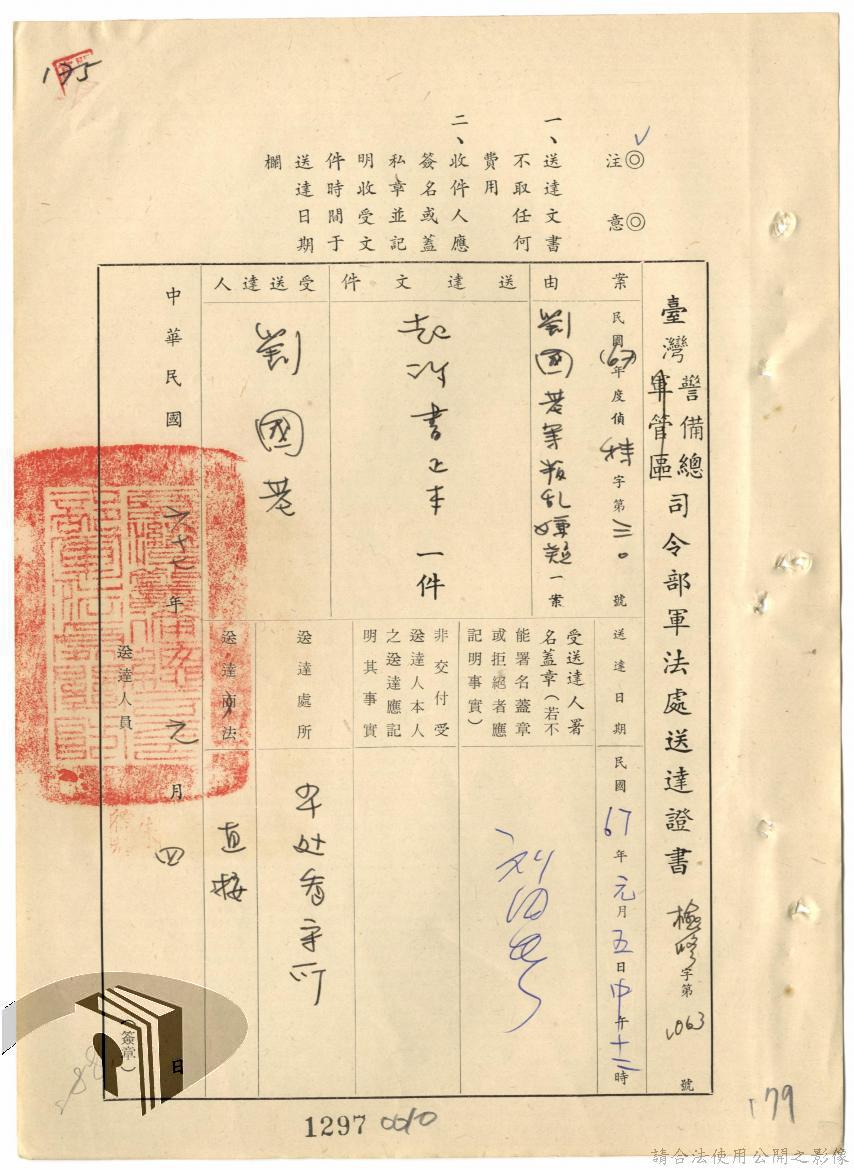 175
◎注意◎
一、送達文書不取任何費用
二、收件人應簽名或蓋私章並記明收受文件時間于送達日期欄
臺灣警備總軍管區司令部軍法處送達證書
字第1063號
案由
民國(67)年度偵特字第三〇號
劉國基等叛乱嫌疑一案
送達文件
起訴書正本一件
受送達人
劉國基
送達日期
民國67年元月五日中午十二時
受送達人署名蓋章(若不能署名蓋章或拒絕者應記明事實)
非交付受送達人本人之送達應記明其事實
送達處所
本处看守所
送達方法
直接
中華民國六十七年元月四日
送達人員
(簽章)
1297 0010
179
請合法使用公開之影像